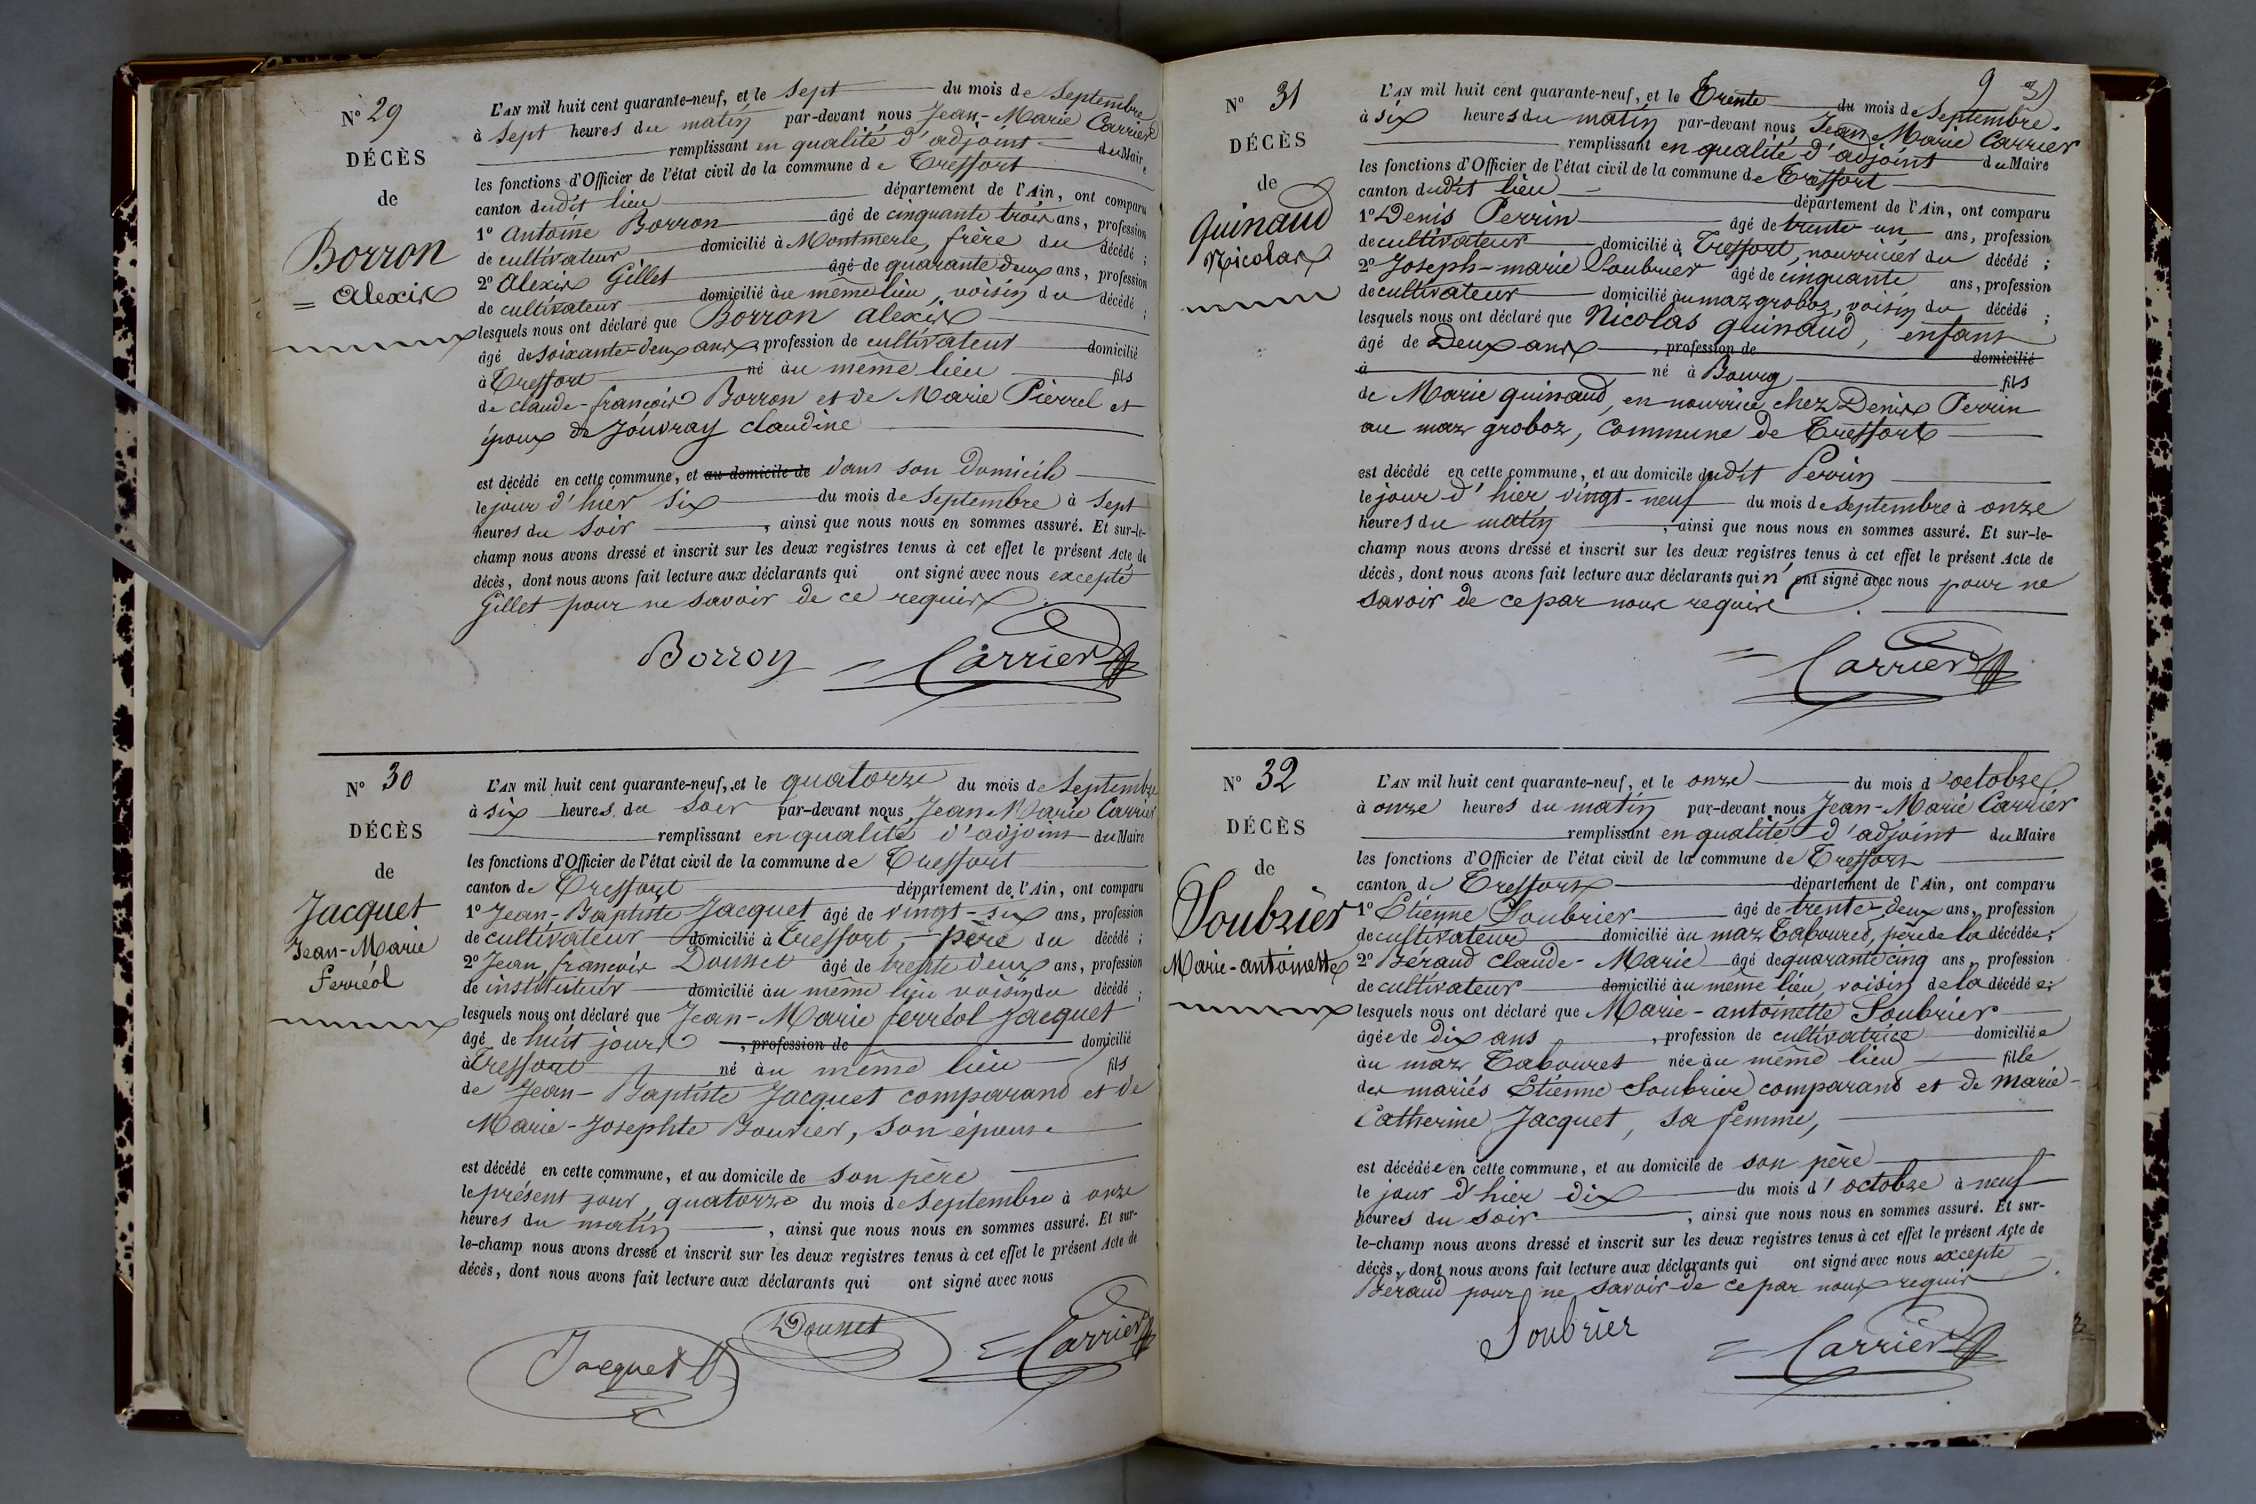 N° 29
DÉCÈS
de
Borron
= alexis
L'AN mil huit cent quarante-neuf, et le sept du mois de Septembre
à sept heures du matin par-devant nous Jean-Marie Carrier
remplissant en qualité d'adjoint du Maire
les fonctions d'Officier de l'état civil de la commune de Treffort
canton dudit lieu département de l'Ain, ont comparu
1° Antoine Borron âgé de cinquante trois ans, profession
de cultivateur domicilié à Montmerle, frère du décédé ;
2° Alexis Gillet âgé de quarante deux ans, profession
de cultivateur domicilié au même lieu, voisin du décédé ;
lesquels nous ont déclaré que Borron alexis
âgé de soixante-deux ans, profession de cultivateur domicilié
à Treffort né au même lieu fils
de claude-françois Borron et de Marie Pierrel et
époux de Jouvray claudine
est décédé en cette commune, et au domicile de dans son Domicile
le jour d'hier six du mois de Septembre à sept
heures du soir, ainsi que nous nous en sommes assuré. Et sur-le-
champ nous avons dressé et inscrit sur les deux registres tenus à cet effet le présent Acte de
décès, dont nous avons fait lecture aux déclarants qui ont signé avec nous excepté
Gillet pour ne savoir de ce requis
Borron = Carrier
N° 30
DÉCÈS
de
Jacquet
Jean-Marie
ferréol
L'AN mil huit cent quarante-neuf, et le quatorze du mois de Septembre
à six heures du soir par-devant nous Jean Marie Carrier
remplissant en qualité d'adjoint du Maire
les fonctions d'Officier de l'état civil de la commune de Treffort
canton de Treffort département de l'Ain, ont comparu
1° Jean-Baptiste Jacquet âgé de vingt-six ans, profession
de cultivateur domicilié à Treffort, père du décédé ;
2° Jean françois Dounet âgé de trente deux ans, profession
de instituteur domicilié au même lieu voisin du décédé ;
lesquels nous ont déclaré que Jean-Marie ferréol Jacquet
âgé de huit jours, profession de domicilié
à Treffort né au même lieu fils
de Jean-Baptiste Jacquet comparant et de
Marie-Josephte Bouvier, son épouse
est décédé en cette commune, et au domicile de son père
le présent jour quatorze du mois de septembre à onze
heures du matin, ainsi que nous nous en sommes assuré. Et sur-
le-champ nous avons dressé et inscrit sur les deux registres tenus à cet effet le présent Acte de
décès, dont nous avons fait lecture aux déclarants qui ont signé avec nous
Jacquet Dounet = Carrier
9 31
N° 31
DÉCÈS
de
Guinaud
Nicolas
L'AN mil huit cent quarante-neuf, et le Trente du mois de Septembre.
à six heures du matin par-devant nous Jean Marie Carrier
remplissant en qualité d'adjoint du Maire
les fonctions d'Officier de l'état civil de la commune de Treffort
canton dudit lieu département de l'Ain, ont comparu
1° Denis Perrin âgé de trente un ans, profession
de cultivateur domicilié à Treffort, nourricier du décédé ;
2° Joseph-marie Soubrier âgé de cinquante ans, profession
de cultivateur domicilié au maz groboz, voisin du décédé ;
lesquels nous ont déclaré que Nicolas guinaud, enfant
âgé de Deux ans, profession de domicilié
à né à Bourg fils
de Marie guinaud, en nourrice chez Denis Perrin
au maz groboz, commune de Treffort
est décédé en cette commune, et au domicile dudit Perrin
le jour d'hier vingt-neuf du mois de septembre à onze
heures du matin, ainsi que nous nous en sommes assuré. Et sur-le-
champ nous avons dressé et inscrit sur les deux registres tenus à cet effet le présent Acte de
décès, dont nous avons fait lecture aux déclarants qui n'ont signé avec nous pour ne
savoir de ce par nous requis.
= Carrier
N° 32
DÉCÈS
de
Soubrier
Marie-antoinette
L'AN mil huit cent quarante-neuf, et le onze du mois d'octobre
à onze heures du matin par-devant nous Jean-Marie Carrier
remplissant en qualité d'adjoint du Maire
les fonctions d'Officier de l'état civil de la commune de Treffort
canton de Treffort département de l'Ain, ont comparu
1° Etienne Soubrier âgé de trente-deux ans, profession
de cultivateur domicilié au maz Tabouret, père de la décédée ;
2° Béraud claude-Marie âgé de quarante cinq ans, profession
de cultivateur domicilié au même lieu, voisin de la décédée ;
lesquels nous ont déclaré que Marie-antoinette Soubrier
âgée de dix ans, profession de cultivatrice domiciliée
au maz Tabouret née au même lieu fille
des mariés Etienne Soubrier comparant et de marie-
Catherine Jacquet, sa femme,
est décédée en cette commune, et au domicile de son père
le jour d'hier dix du mois d'octobre à neuf
heures du soir, ainsi que nous nous en sommes assuré. Et sur-
le-champ nous avons dressé et inscrit sur les deux registres tenus à cet effet le présent Acte de
décès, dont nous avons fait lecture aux déclarants qui ont signé avec nous excepté
Béraud pour ne savoir de ce par nous requis.
Soubrier = Carrier